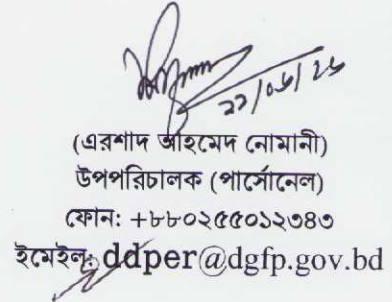 ২২/০৬/২৬
(এরশাদ আহমেদ নোমানী)
উপপরিচালক (পার্সোনেল)
ফোন: +৮৮০২৫৫০১২৩৪৩
ইমেইল: ddper@dgfp.gov.bd